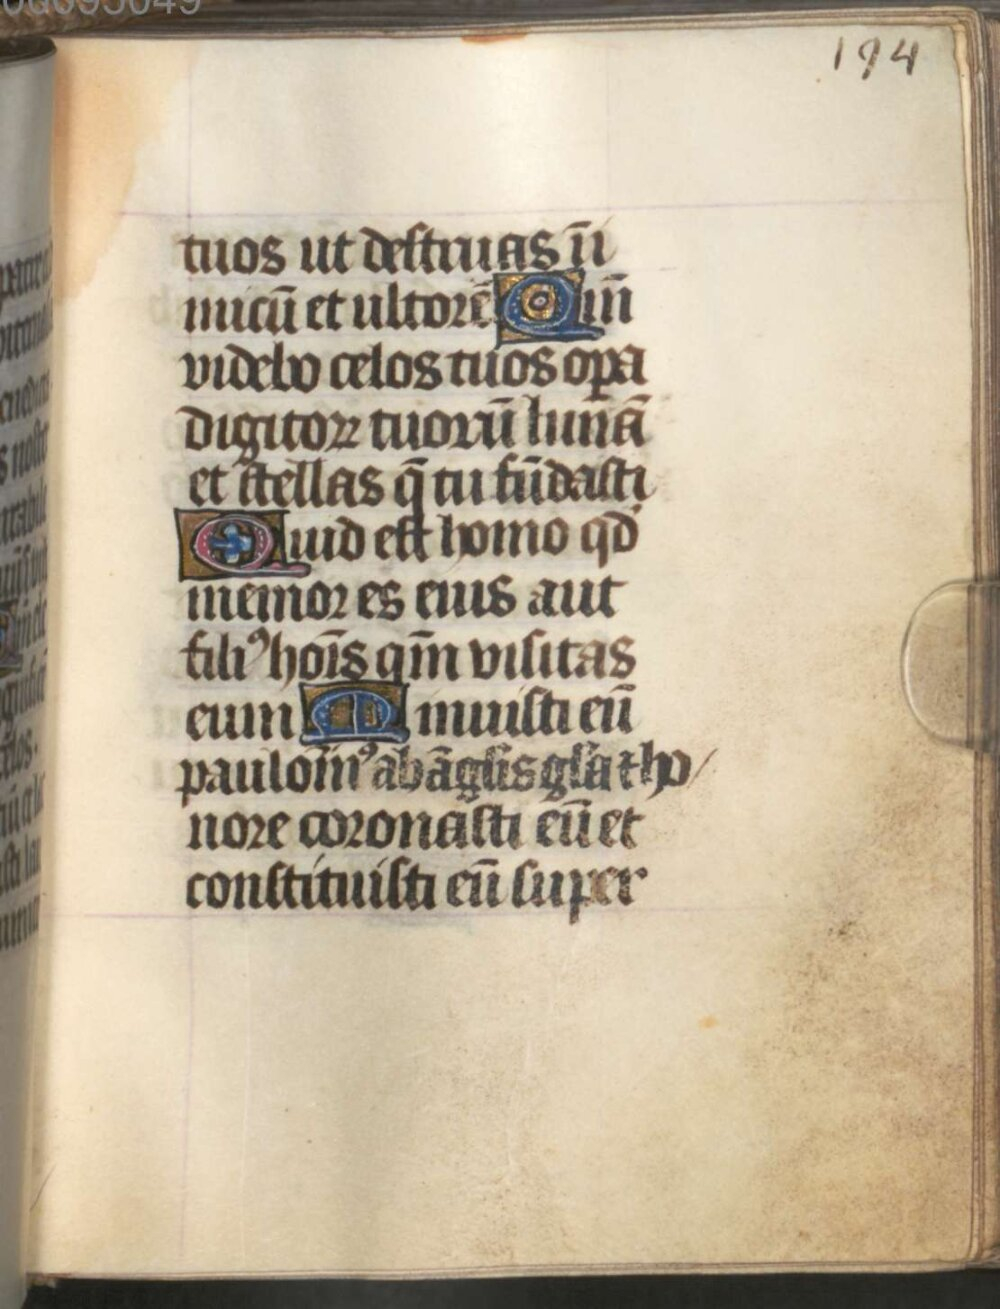 194
tuos ut destruas īi
micū et ultorē Qm̄
videbo celos tuos oꝑa
digitoꝝ tuorū lunā
et stellas q̄ tu fūdasti
Quid est homo qd̄
memor es eius aut
filiꝰ hoīs qm̄ visitas
eum Minuisti eū
paulomīꝰ ab āglīs glīa et ho
nore coronasti eū et
constituisti eū super